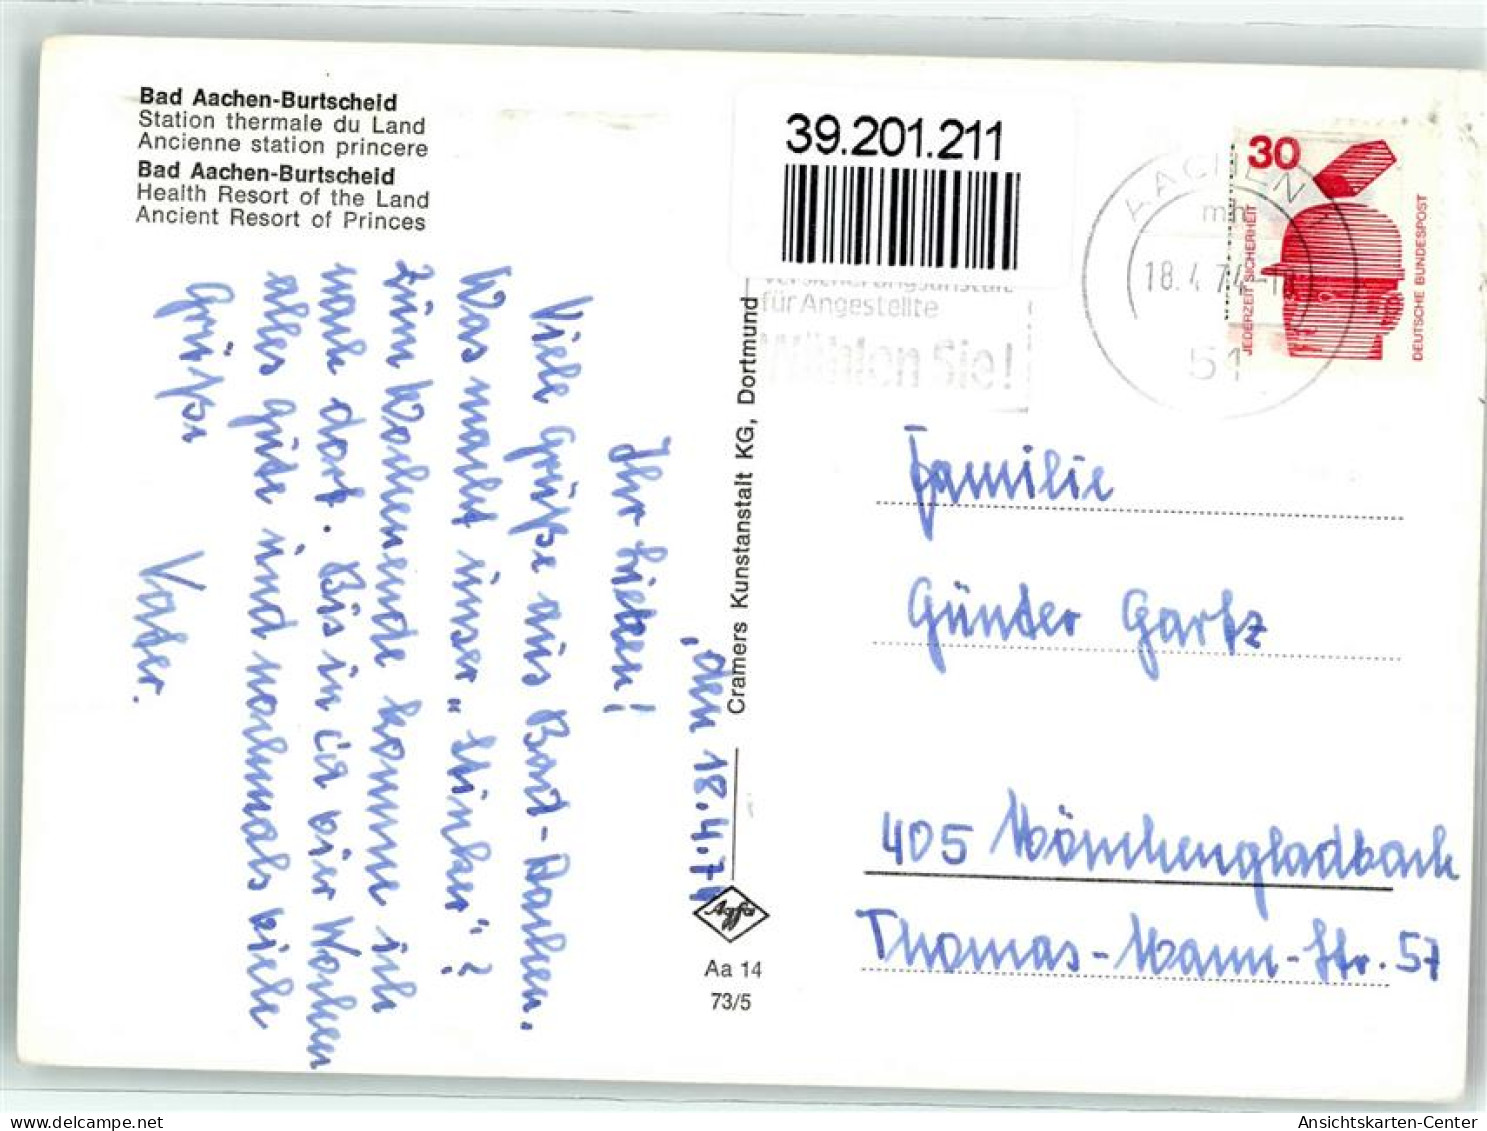 Bad Aachen-Burtscheid
Station thermale du Land
Ancienne station princere
Bad Aachen-Burtscheid
Health Resort of the Land
Ancient Resort of Princes
, den 18.4.74
Ihr Lieben!
Viele Grüße aus Bad-Aachen.
Was macht unser „Stinker"?
Zum Wochenende komme ich
nach dort. Bis in ca vier Wochen
alles gute und nochmals viele
Grüße
Vater.
Cramers Kunstanstalt KG, Dortmund
Agfa
Aa 14
73/5
39.201.211
für Angestellte
Wählen Sie!
AACHEN 1
mh
18.4.74
51
30
JEDERZEIT SICHERHEIT
DEUTSCHE BUNDESPOST
Familie
Günter Gartz
405 Mönchengladbach
Thomas-Mann-Str. 57
Ansichtskarten-Center